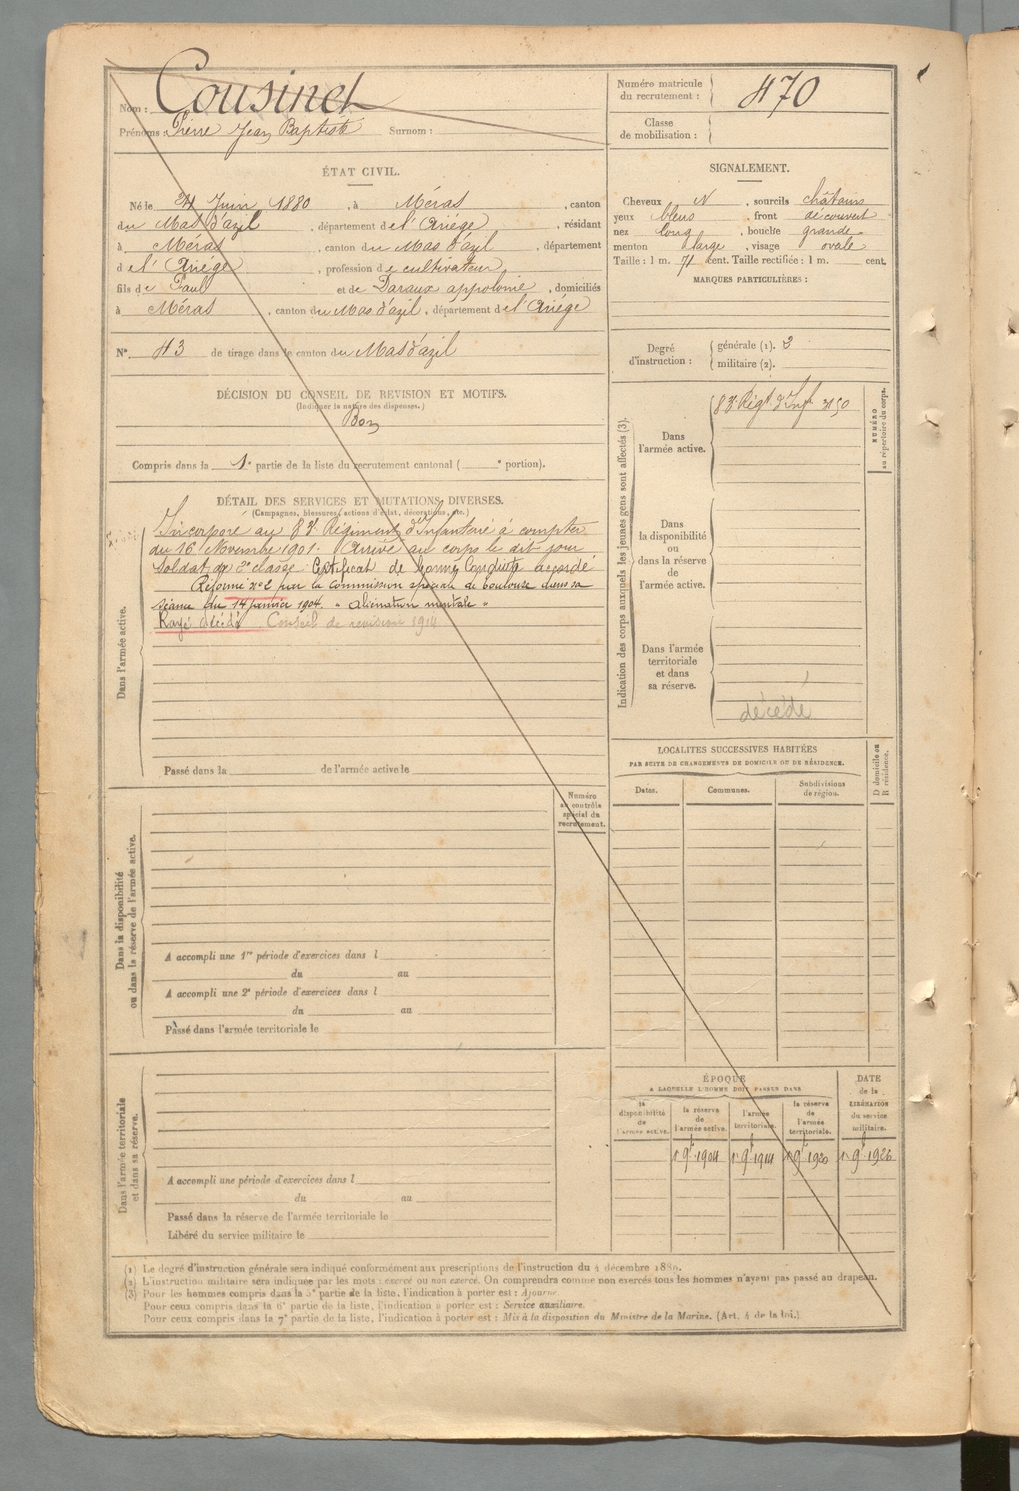 Nom : Cousinet
Prénoms : Pierre Jean Baptiste Surnom :
Numéro matricule du recrutement : 470
Classe de mobilisation :
ÉTAT CIVIL.
Né le Juin 1880, à Méras, canton
du Mas d'azil, département de l'Ariége, résidant
à Méras, canton du Mas d'azil, département
d e l'Ariége, profession de cultivateur,
fils de Paul et de Daraux appolonie, domiciliés
à Méras, canton du Mas d'azil, département de l'Ariége
N° 43 de tirage dans le canton du Mas d'azil
SIGNALEMENT.
Cheveux N, sourcils châtains
yeux bleus, front découvert
nez long, bouche grande
menton large, visage ovale
Taille : 1 m. 71 cent. Taille rectifiée : 1 m. cent.
MARQUES PARTICULIÈRES :
Degré d'instruction : générale (1). 3
militaire (2).
DÉCISION DU CONSEIL DE REVISION ET MOTIFS.
(Indiquer la nature des dispenses.)
Bon
Compris dans la 1e partie de la liste du recrutement cantonal ( e portion).
DÉTAIL DES SERVICES ET MUTATIONS DIVERSES.
(Campagnes, blessures, actions d'éclat, décorations, etc.)
Dans l'armée active.
Incorporé au 83e Régiment d'Infanterie à compter
du 16 Novembre 1901. Arrivé au corps le dit jour
Soldat de 2e classe. Certificat de bonne Conduite accordé
Réformé n°2 par la Commission spéciale de Toulouse dans sa
séance du 14 janvier 1904. "aliénation mentale"
Rayé décédé. Conseil de revision 1914
Passé dans la de l'armée active le
Indication des corps auxquels les jeunes gens sont affectés (3).
NUMÉRO au répertoire du corps.
Dans l'armée active.
83e Régt d'Inf 3150
Dans la disponibilité ou dans la réserve de l'armée active.
Dans l'armée territoriale et dans sa réserve.
décédé
LOCALITES SUCCESSIVES HABITÉES
PAR SUITE DE CHANGEMENTS DE DOMICILE OU DE RÉSIDENCE.
D domicile ou R résidence.
Dates. Communes. Subdivisions de région.
Numéro au contrôle spécial du recrutement.
Dans la disponibilité ou dans la réserve de l'armée active.
A accompli une 1re période d'exercices dans l
du au
A accompli une 2e période d'exercices dans l
du au
Passé dans l'armée territoriale le
Dans l'armée territoriale et dans sa réserve.
A accompli une période d'exercices dans l
du au
Passé dans la réserve de l'armée territoriale le
Libéré du service militaire le
ÉPOQUE
A LAQUELLE L'HOMME DOIT PASSER DANS
la disponibilité de l'armée active.
la réserve de l'armée active.
l'armée territoriale.
la réserve de l'armée territoriale.
DATE de la LIBÉRATION du service militaire.
1er 9bre 1904 1er 9bre 1914 1er 9bre 1920 1er 9bre 1926
(1) Le degré d'instruction générale sera indiqué conformément aux prescriptions de l'instruction du 4 décembre 1889.
(2) L'instruction militaire sera indiquée par les mots : exercé ou non exercé. On comprendra comme non exercés tous les hommes n'ayant pas passé au drapeau.
(3) Pour les hommes compris dans la 5e partie de la liste, l'indication à porter est : Ajourné.
Pour ceux compris dans la 6e partie de la liste, l'indication à porter est : Service auxiliaire.
Pour ceux compris dans la 7e partie de la liste, l'indication à porter est : Mis à la disposition du Ministre de la Marine. (Art. 4 de la loi.)